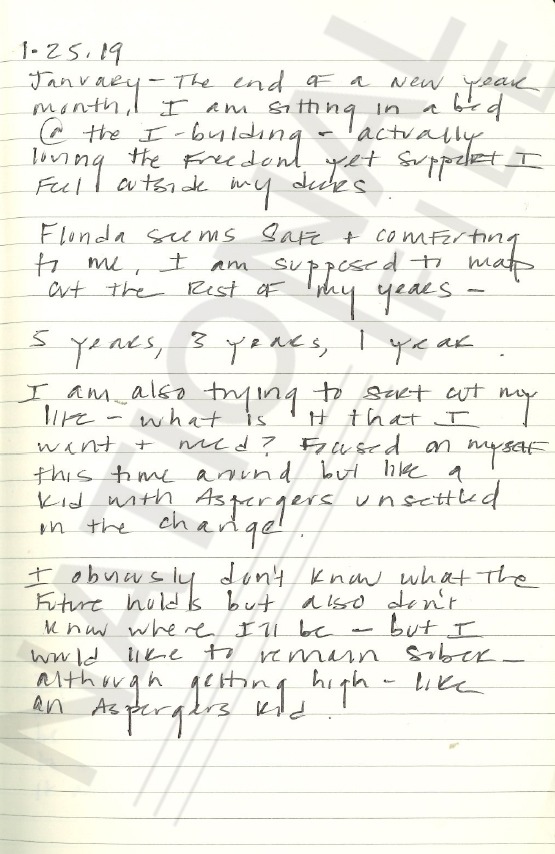 1.25.19
January - The end of a new year
month, I am sitting in a bed
@ the I-building - actually
loving the Freedom yet support I
Feel outside my doors.
Florida seems safe + comforting
to me, I am supposed to map
out the Rest of my years -
5 years, 3 years, 1 year.
I am also trying to sort out my
life - what is it that I
want + need? Focused on myself
this time around but like a
kid with Aspergers unsettled
in the change.
I obviously don't know what the
Future holds but also don't
know where I'll be - but I
would like to remain sober -
although getting high - like
an Aspergers kid.
NATIONAL
FILE